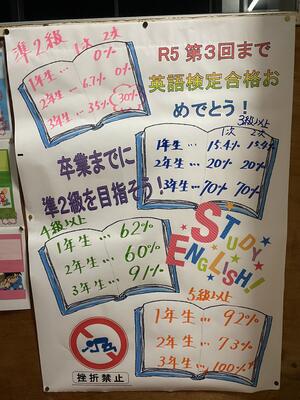 準2級
1次 2次
1年生… 0%
2年生… 6.7% 0%
3年生… 35% 30%
R5 第3回まで
英語検定合格お
めでとう!
3級以上
1次 2次
1年生… 15.4% 15.4%
2年生… 20% 20%
3年生… 70% 70%
卒業までに
準2級を目指そう!
4級以上
1年生… 62%
2年生… 60%
3年生… 91%
STUDY
ENGLISH!!
5級以上
1年生… 92%
2年生… 73%
3年生… 100%
挫折禁止